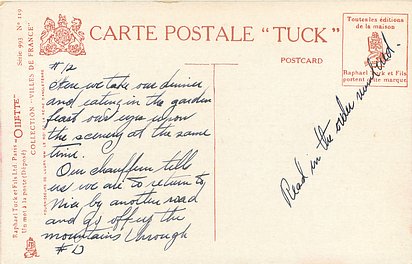 CARTE POSTALE "TUCK"
POSTCARD
Toutes les éditions
de la maison
Raphael Tuck et Fils
portent cette marque
Série 993 N° 119
COLLECTION "VILLES DE FRANCE"
"OILETTE"
Raphael Tuck et Fils Ltd, Paris
Un mot à la poste (Déposé)
#12
Here we take our dinner
and eating in the garden
feast our eyes upon
the scenery at the same
time.
Our chauffeur tells
us we are to return to
Nice by another road
and go off up the
mountains through
#13
Read in the order numbered!